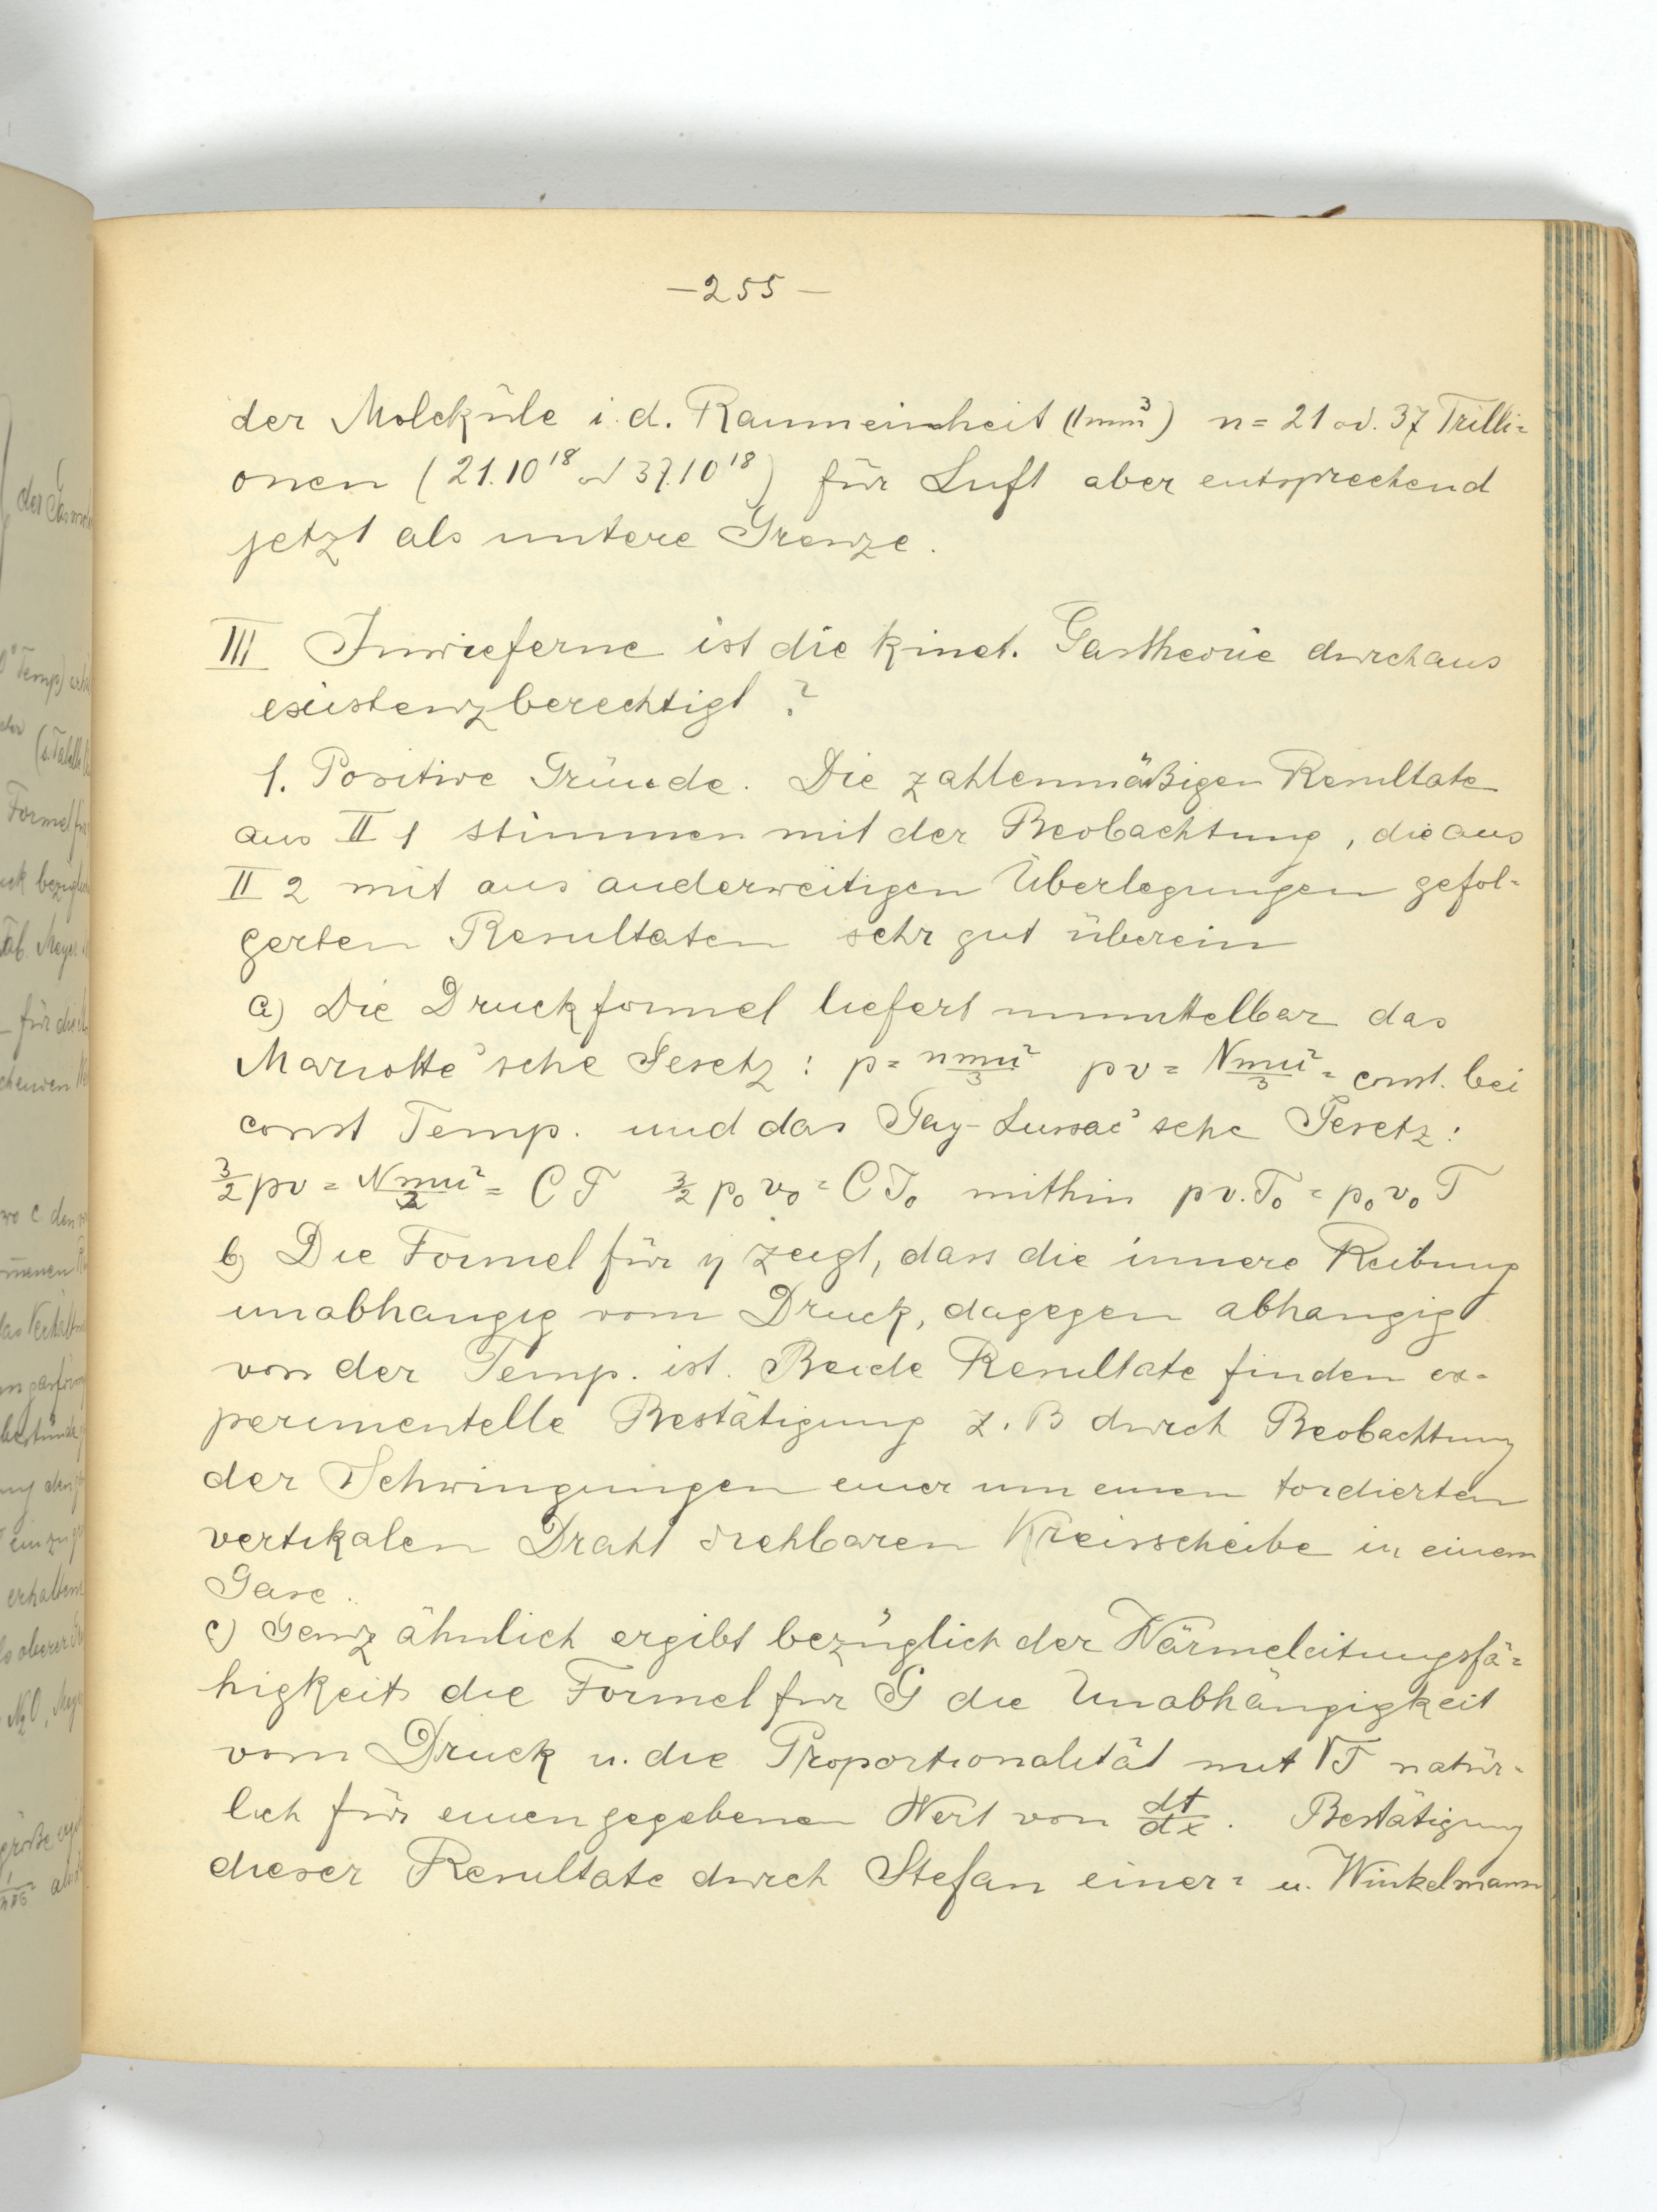 —255—
der Moleküle i. d. Raumeinheit (1mm³) n = 21 od. 37 Trilli=
onen (21.10¹⁸ od 37.10¹⁸) für Luft aber entsprechend
jetzt als untere Grenze.
III Inwieferne ist die kinet. Gastheorie durchaus
existenzberechtigt?
1. Positive Gründe. Die zahlenmäßigen Resultate
aus II 1 stimmen mit der Beobachtung, die aus
II 2 mit aus anderweitigen Überlegungen gefol=
gerten Resultaten sehr gut überein
a) Die Druckformel liefert unmittelbar das
Mariotte'sche Gesetz: p = nmu²/3 pv = Nmu²/3 = const. bei
const Temp. und das Gay-Lussac'sche Gesetz:
3/2 pv = Nmu²/2 = CT 3/2 p₀v₀ = CT₀ mithin pv.T₀ = p₀v₀T
b) Die Formel für η zeigt, dass die innere Reibung
unabhangig vom Druck, dagegen abhangig
von der Temp. ist. Beide Resultate finden ex=
perimentelle Bestätigung z. B durch Beobachtung
der Schwingungen einer um einen tordierten
vertikalen Draht drehbaren Kreisscheibe in einem
Gase.
c) Ganz ähnlich ergibt bezüglich der Wärmeleitungsfä=
higkeit die Formel für G die Unabhängigkeit
vom Druck u. die Proportionalität mit √T natür=
lich für einen gegebenen Wert von dt/dx. Bestätigung
dieser Resultate durch Stefan einer= u. Winkelmann